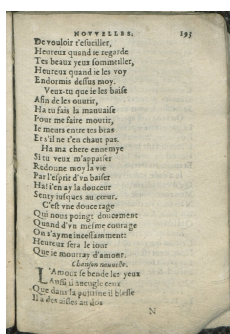 NOVVELLES. 193
De vouloir t'esueiller,
Heureux quand ie regarde
Tes beaux yeux sommeiller,
Heureux quand ie les voy
Endormis dessus moy.
Veux-tu que ie les baise
Afin de les ouurir,
Ha tu fais la mauuaise
Pour me faire mourir,
Ie meurs entre tes bras
Et s'il ne t'en chaut pas.
Ha ma chere ennemye
Si tu veux m'appaiser
Redonne moy la vie
Par l'esprit d'vn baiser
Ha! i'en ay la douceur
Senty iusques au cœur.
C'est vne douce rage
Qui nous poingt doucement
Quand d'vn mesme courage
On s'ayme incessamment:
Heureux sera le iour
Que ie mourray d'amour.
Chanson nouuelle.
L'Amour se bende les yeux
Aussi il aueugle ceux
Que dans sa poitrine il blesse
Il a des aisles au dos
N